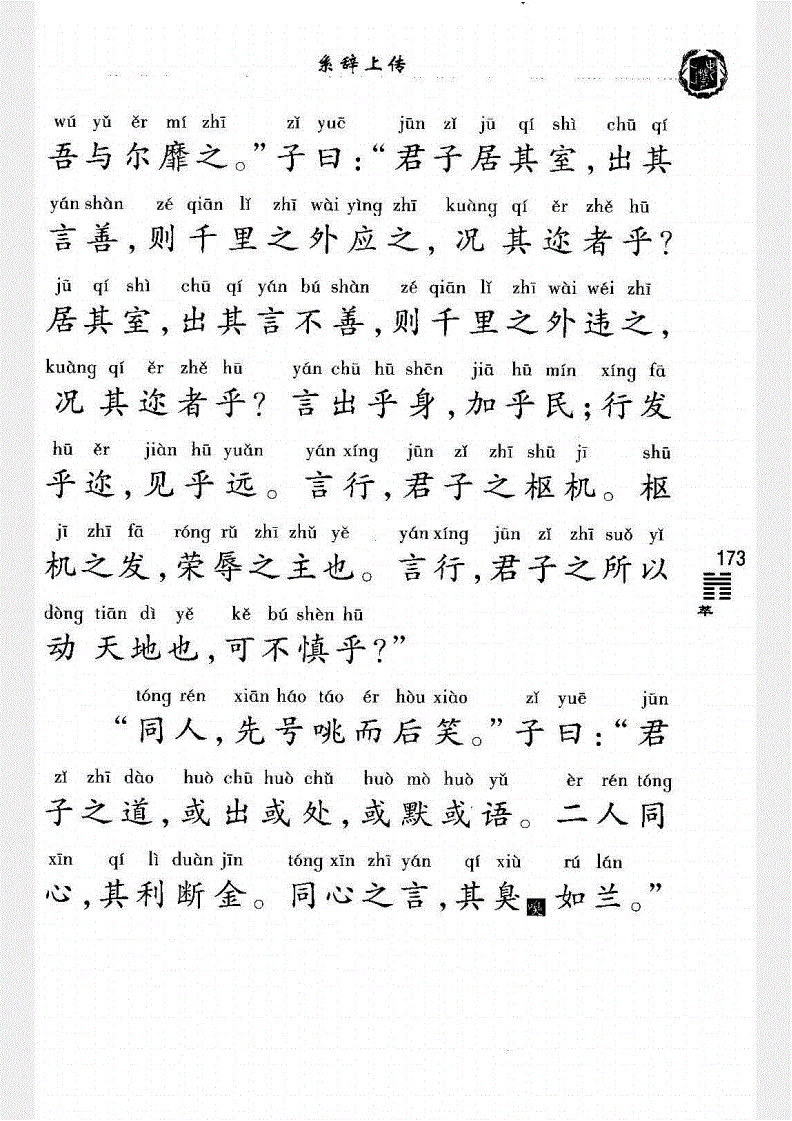 系辞上传
wú yǔ ěr mí zhī zǐ yuē jūn zǐ jū qí shì chū qí
吾与尔靡之。”子曰：“君子居其室，出其
yán shàn zé qiān lǐ zhī wài yìng zhī kuàng qí ěr zhě hū
言善，则千里之外应之，况其迩者乎？
jū qí shì chū qí yán bú shàn zé qiān lǐ zhī wài wéi zhī
居其室，出其言不善，则千里之外违之，
kuàng qí ěr zhě hū yán chū hū shēn jiā hū mín xíng fā
况其迩者乎？言出乎身，加乎民；行发
hū ěr jiàn hū yuǎn yán xíng jūn zǐ zhī shū jī shū
乎迩，见乎远。言行，君子之枢机。枢
jī zhī fā róng rǔ zhī zhǔ yě yán xíng jūn zǐ zhī suǒ yǐ
机之发，荣辱之主也。言行，君子之所以
173
萃
dòng tiān dì yě kě bú shèn hū
动天地也，可不慎乎？”
tóng rén xiān háo táo ér hòu xiào zǐ yuē jūn
“同人，先号咷而后笑。”子曰：“君
zǐ zhī dào huò chū huò chǔ huò mò huò yǔ èr rén tóng
子之道，或出或处，或默或语。二人同
xīn qí lì duàn jīn tóng xīn zhī yán qí xiù rú lán
心，其利断金。同心之言，其臭嗅如兰。”